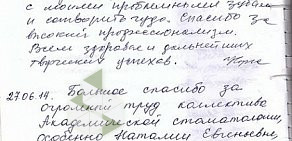 с моими проблемными зубами
и сотворить чудо. Спасибо за
высокий профессионализм.
Всем здоровья и дальнейших
творческих успехов.
27.06.14. Большое спасибо за
огромный труд коллективу
Академической стоматологии,
особенно Наталии Евгеньевне,